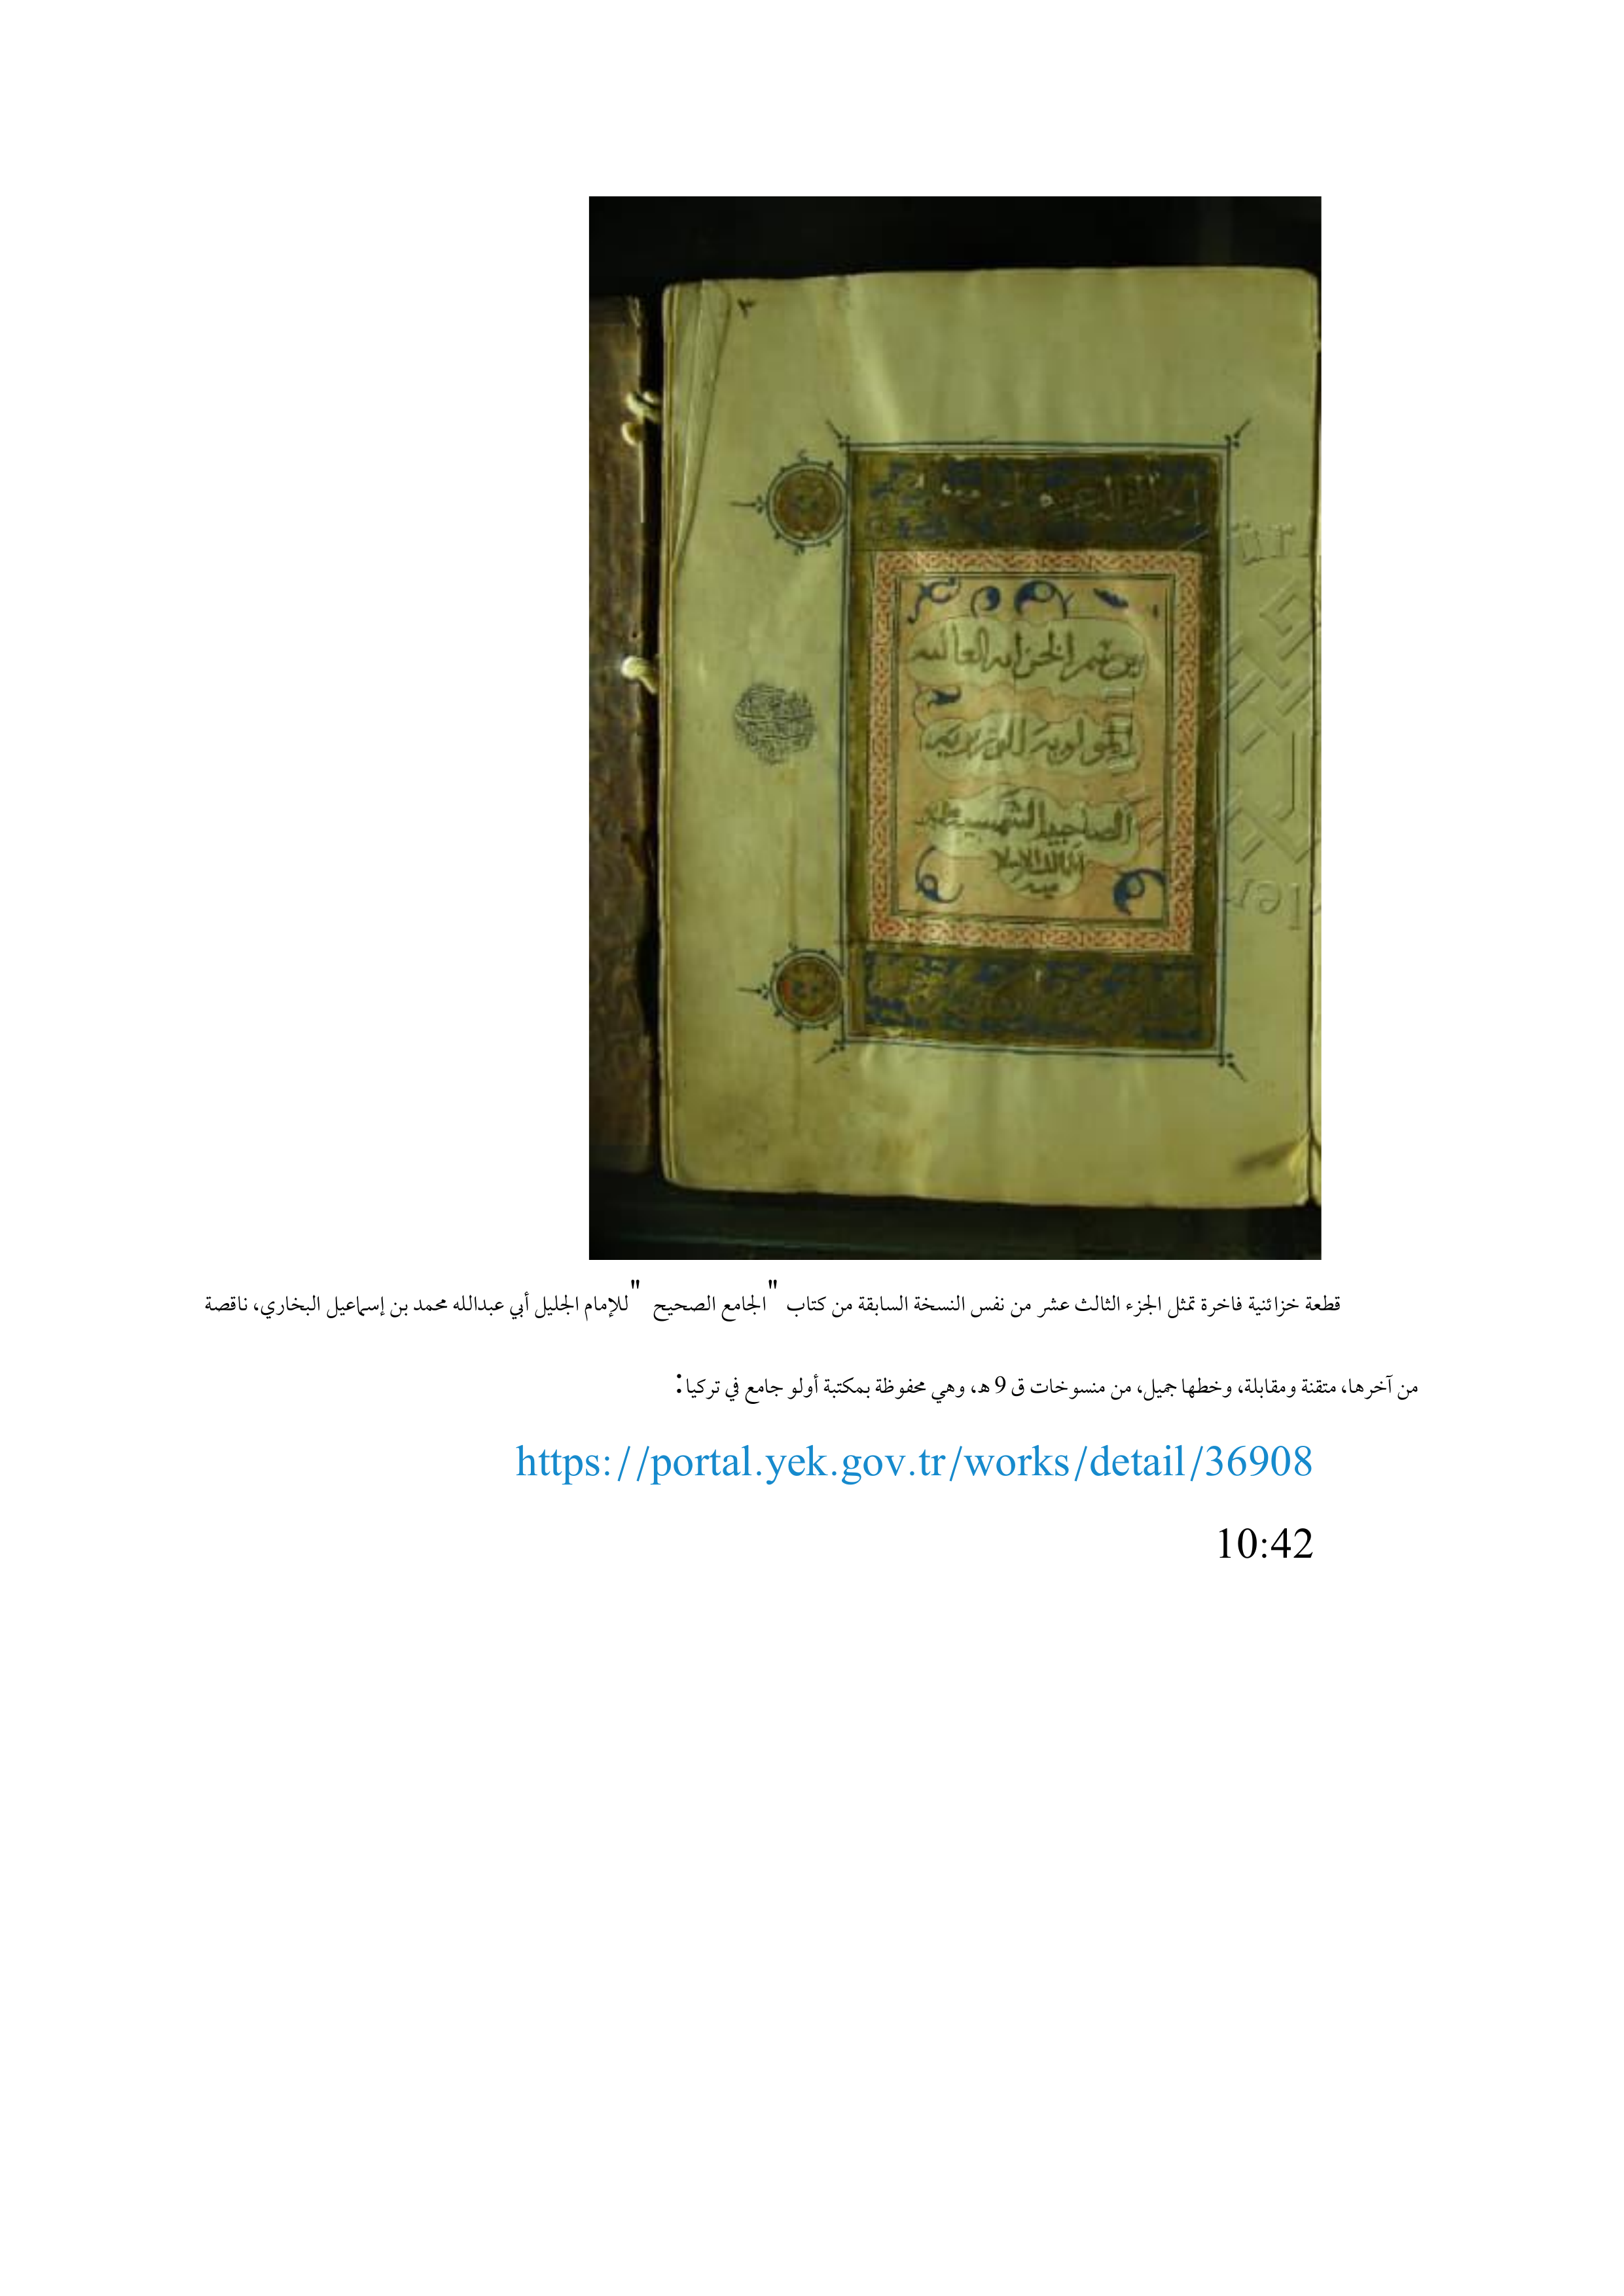 ٣
برسم الخزانة العالية
المولوية الوزيرية
الصاحبية الشمسية
قطعة خزائنية فاخرة تمثل الجزء الثالث عشر من نفس النسخة السابقة من كتاب "الجامع الصحيح" للإمام الجليل أبي عبدالله محمد بن إسماعيل البخاري، ناقصة
من آخرها، متقنة ومقابلة، وخطها جميل، من منسوخات ق 9 هـ، وهي محفوظة بمكتبة أولو جامع في تركيا:
https://portal.yek.gov.tr/works/detail/36908
10:42